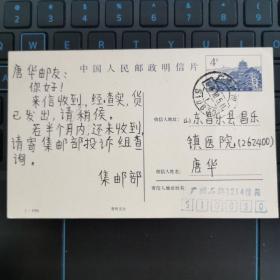 中国人民邮政明信片
4分
唐华邮友:
你好!
来信收到,经查实,货
已发出,请稍候。
若半个月内,还未收到,
请寄集邮部投诉组查
询。
集邮部
收信人地址:
山东昌乐县昌乐
镇医院(262400)
收信人姓名:
唐华
寄信人地址姓名:
1214信箱
510050